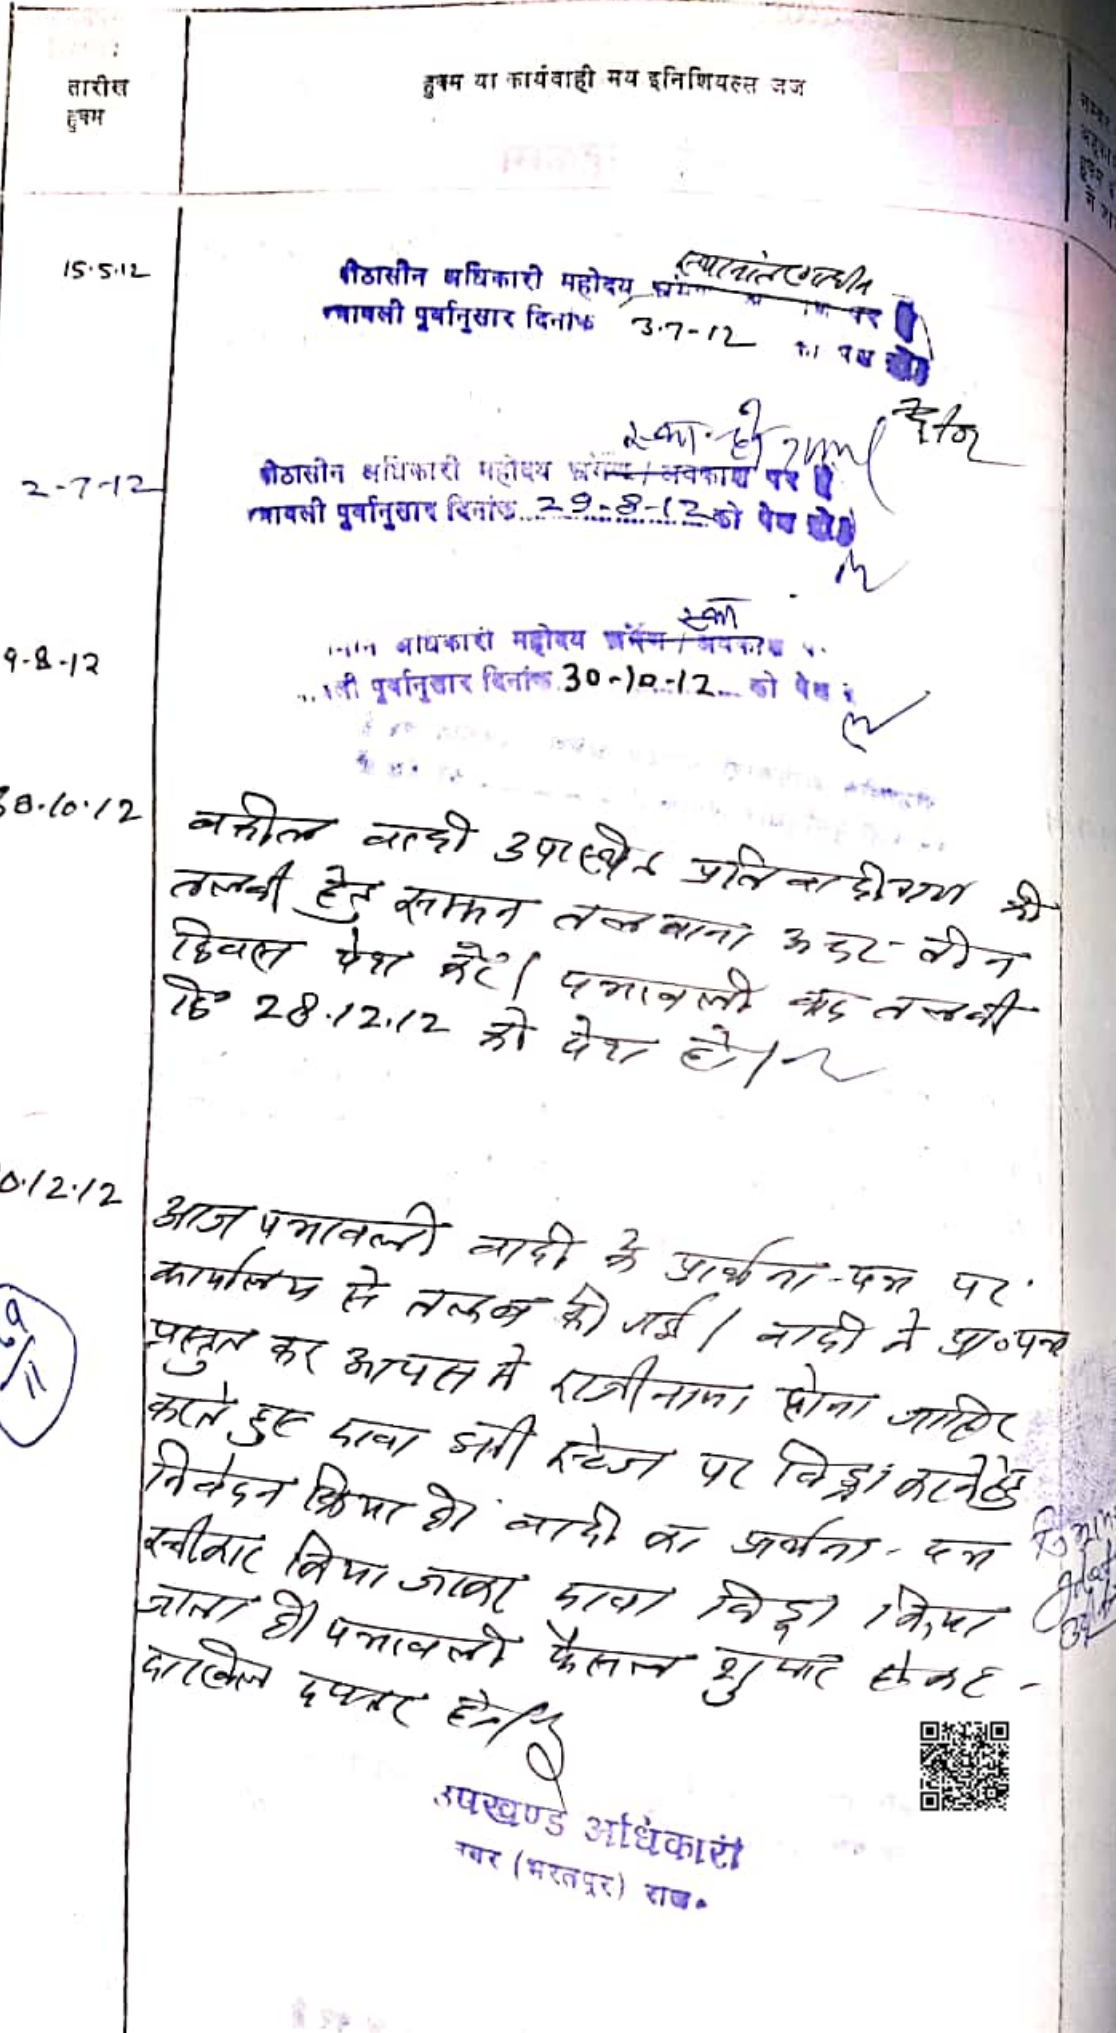 तारीख
हुक्म
हुक्म या कार्यवाही मय इनिशियल्स जज
15.5.12
स्थानांतरणाधीन
पीठासीन अधिकारी महोदय पर
पूर्वानुसार दिनांक 3.7-12 पेश
2-7-12
पीठासीन अधिकारी महोदय अवकाश पर
पूर्वानुसार दिनांक 29-8-12 को पेश
9-8-12
अधिकारी महोदय अवकाश
पूर्वानुसार दिनांक 30-10-12 को पेश
30.10.12
वकील वादी उपस्थित प्रतिवादीगण की
तलबी हेतु सम्मन तलबाना अन्दर तीन
दिवस पेश करें। पत्रावली बाद तलबी
दि० 28.12.12 को पेश हो।
0.12.12
आज पत्रावली वादी के प्रार्थना-पत्र पर
कार्यालय से तलब की गई। वादी ने प्रा०पत्र
प्रस्तुत कर आपस में राजीनामा होना जाहिर
करते हुए दावा इसी स्टेज पर विड्रा करने हेतु
निवेदन किया है। वादी का प्रार्थना-पत्र
स्वीकार किया जाकर दावा विड्रा किया
जाता है। पत्रावली फैसल शुमार होकर -
दाखिल दफ्तर हो।
उपखण्ड अधिकारी
नगर (भरतपुर) राज.